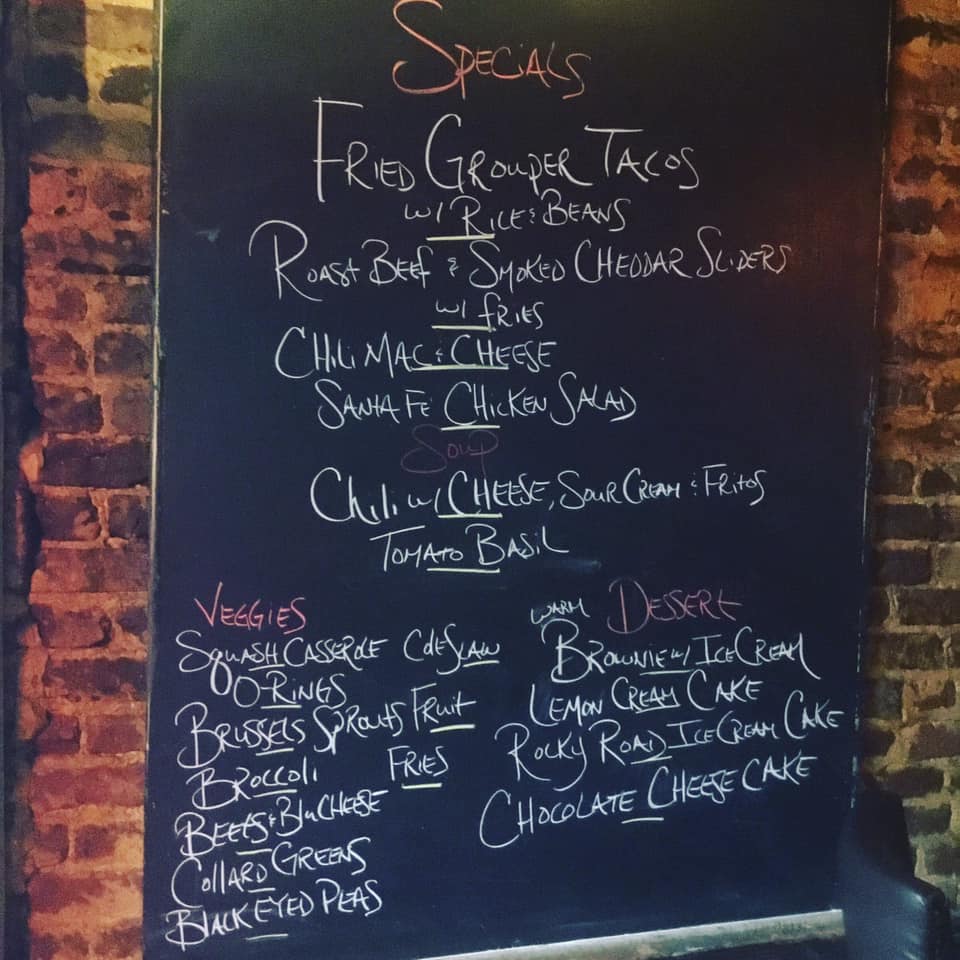 Specials
Fried Grouper Tacos
w/ Rice & Beans
Roast Beef & Smoked Cheddar Sliders
w/ fries
Chili Mac & Cheese
Santa Fe Chicken Salad
Soup
Chili w/ Cheese, Sour Cream & Fritos
Tomato Basil
Veggies
Squash Casserole ColeSlaw
O-Rings
Brussels Sprouts Fruit
Broccoli Fries
Beets & Blu Cheese
Collard Greens
Black Eyed Peas
warm Dessert
Brownie w/ Ice Cream
Lemon Cream Cake
Rocky Road Ice Cream Cake
Chocolate Cheese Cake